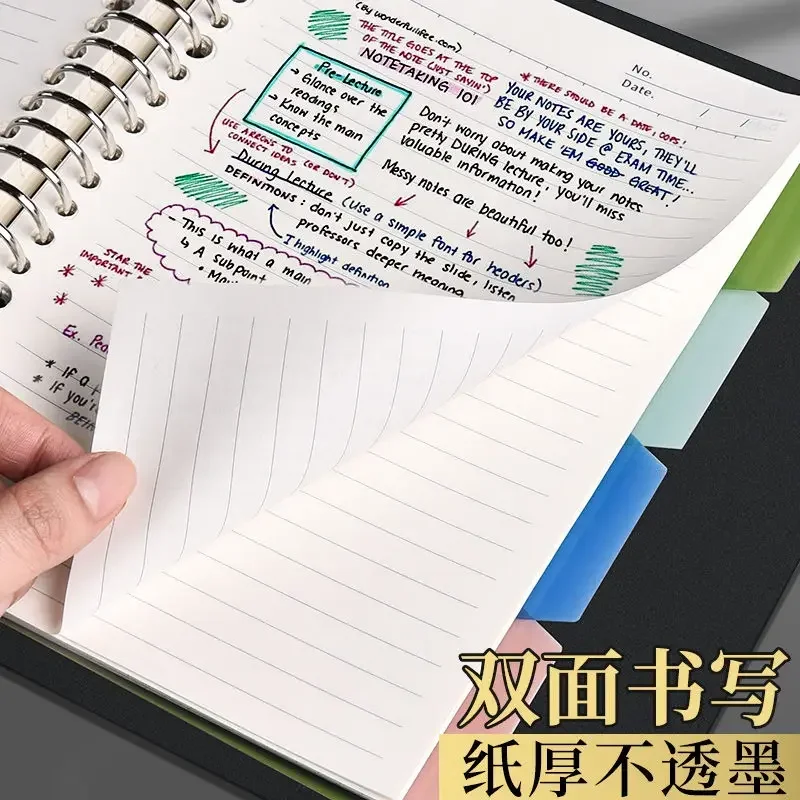 (By wonderfullifee.com)
THE TITLE GOES AT THE TOP
OF THE NOTE (JUST SAYIN')
NOTETAKING 101
No.
Date. / /
* THERE SHOULD BE A DATE, OOPS!
YOUR NOTES ARE YOURS, THEY'LL
BE BY YOUR SIDE @ EXAM TIME...
SO MAKE 'EM GOOD GREAT!
Pre-Lecture
→ Glance over the
readings
→ Know the main
concepts
Don't worry about making your notes
pretty DURING lecture, you'll miss
valuable information!
Messy notes are beautiful too!
USE ARROWS TO
CONNECT IDEAS (OR DON'T)
During Lecture (Use a simple font for headers)
DEFINITIONS: don't just copy the slide, listen
professors deeper meaning
I highlight definition
- This is what a main
↳ A subpoint
STAR THE
IMPORTANT
* *
*
Ex.
* If a
* If you're
双面书写
纸厚不透墨